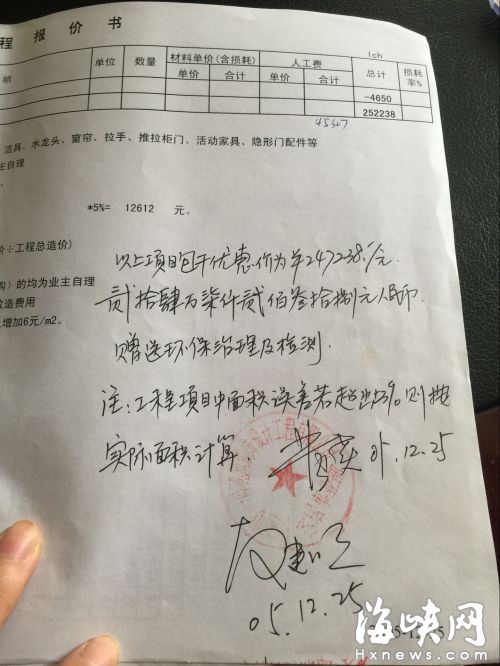 程 报 价 书
明 单位 数量 材料单价(含损耗) 人工费 总计 损耗率%
单价 合计 单价 合计
-4650
252238
洁具、水龙头、窗帘、拉手、推拉柜门、活动家具、隐形门配件等
主自理
*5%= 12612 元。
价÷工程总造价)
以上项目包干优惠价为￥247238.元.
购）的均为业主自理
贰拾肆万柒仟贰佰叁拾捌元人民币.
改造费用
增加6元/m2。
赠送环保治理及检测.
注:工程项目中面积误差若超出3%则按
实际面积计算.
05.12.25
05.12.25
海峡网
Hxnews.com